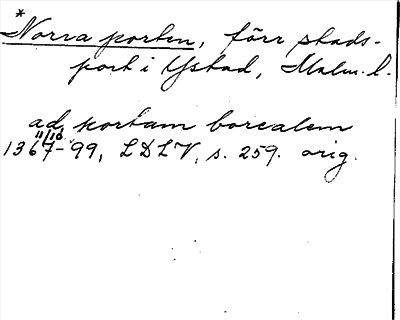 *
Norra porten, förr stads-
port i Ystad, Malm. l.
ad portam borealem
11/10
1367-99, LDLV, s. 259. orig.